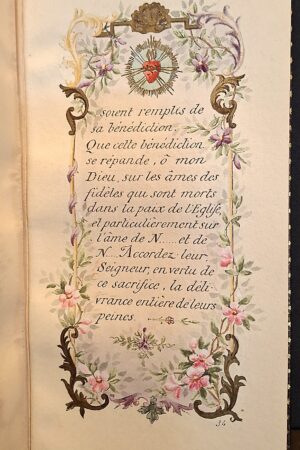 soient remplis de
sa bénédiction.
Que cette bénédiction
se répande, ô mon
Dieu, sur les âmes des
fidèles qui sont morts
dans la paix de l'Eglise,
et particulièrement sur
l'âme de N..... et de
N.... Accordez-leur,
Seigneur, en vertu de
ce sacrifice, la déli-
vrance entière de leurs
peines.
34